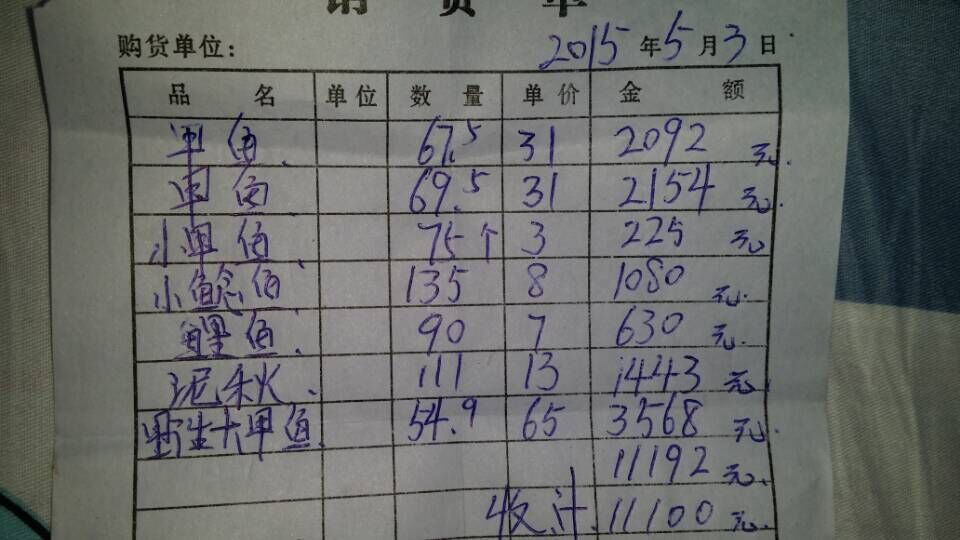 销货单
购货单位： 2015年5月3日
品名 单位 数量 单价 金额
甲鱼 67.5 31 2092元
甲鱼 69.5 31 2154元
小甲鱼 75个 3 225元
小鲶鱼 135 8 1080元
鲤鱼 90 7 630元
泥秋 111 13 1443元
野生大甲鱼 54.9 65 3568元
11192元
收计 11100元